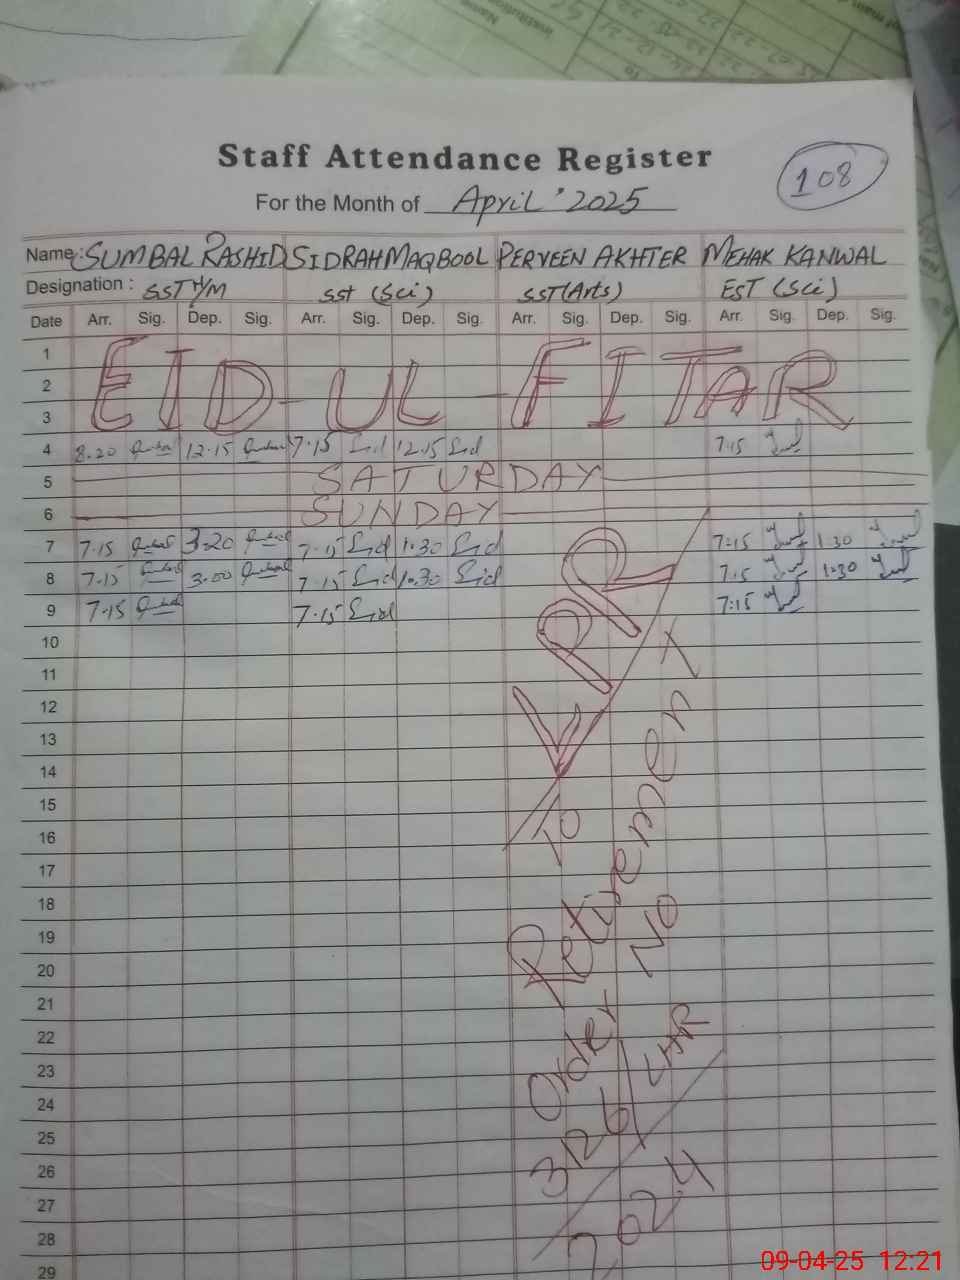 Staff Attendance Register
108
For the Month of April' 2025
Name : SUMBAL RASHID SIDRAH MAQBOOL PERVEEN AKHTER MEHAK KANWAL
Designation : SST H/M SST (Sci) SST (Arts) EST (Sci)
Date Arr. Sig. Dep. Sig. Arr. Sig. Dep. Sig. Arr. Sig. Dep. Sig. Arr. Sig. Dep. Sig.
1
2 EID-UL-FITAR
3
4 8.20 12.15 7.15 Sid 12.15 Sid 7.15
5 SATURDAY
6 SUNDAY
7 7.15 3.20 7.15 Sid 1.30 Sid 7:15 1.30
8 7.15 3.00 7.15 Sid 1.30 Sid 7.15 1:30
9 7.15 7.15 Sid 7:15
10
11
12
13
14
15
16
17
18
19
20
21
22
23
24
25
26
27
28
29
LPR
To
Retirement
Order No
3126/LHR
2024
09-04-25 12:21